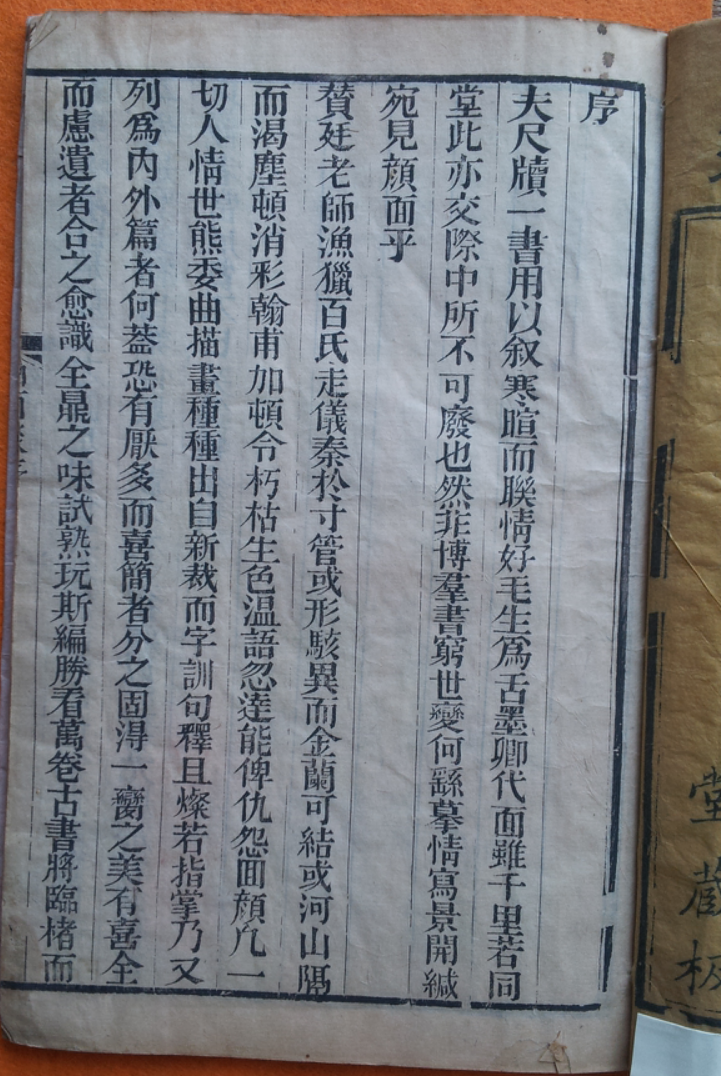 堂藏板
序
夫尺牘一書用以叙寒暄而聯情好毛生爲舌墨卿代面雖千里若同
堂此亦交際中所不可廢也然非博羣書窮世變何繇摹情寫景開緘
宛見顔面乎
贊廷老師漁獵百氏走儀秦於寸管或形駭異而金蘭可結或河山隔
而渴塵頓消彩翰甫加頓令朽枯生色温語忽達能俾仇怨囬顔凢一
切人情世態委曲描畫種種出自新裁而字訓句釋且燦若指掌乃又
列爲內外篇者何葢恐有厭多而喜簡者分之固淂一臠之美有喜全
而慮遺者合之愈識全鼎之味試熟玩斯編勝看萬卷古書將臨楮而